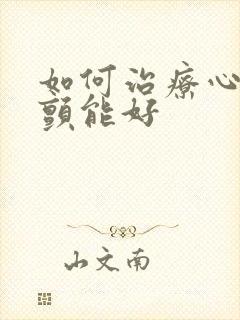 如何治療心
顫能好
山文南